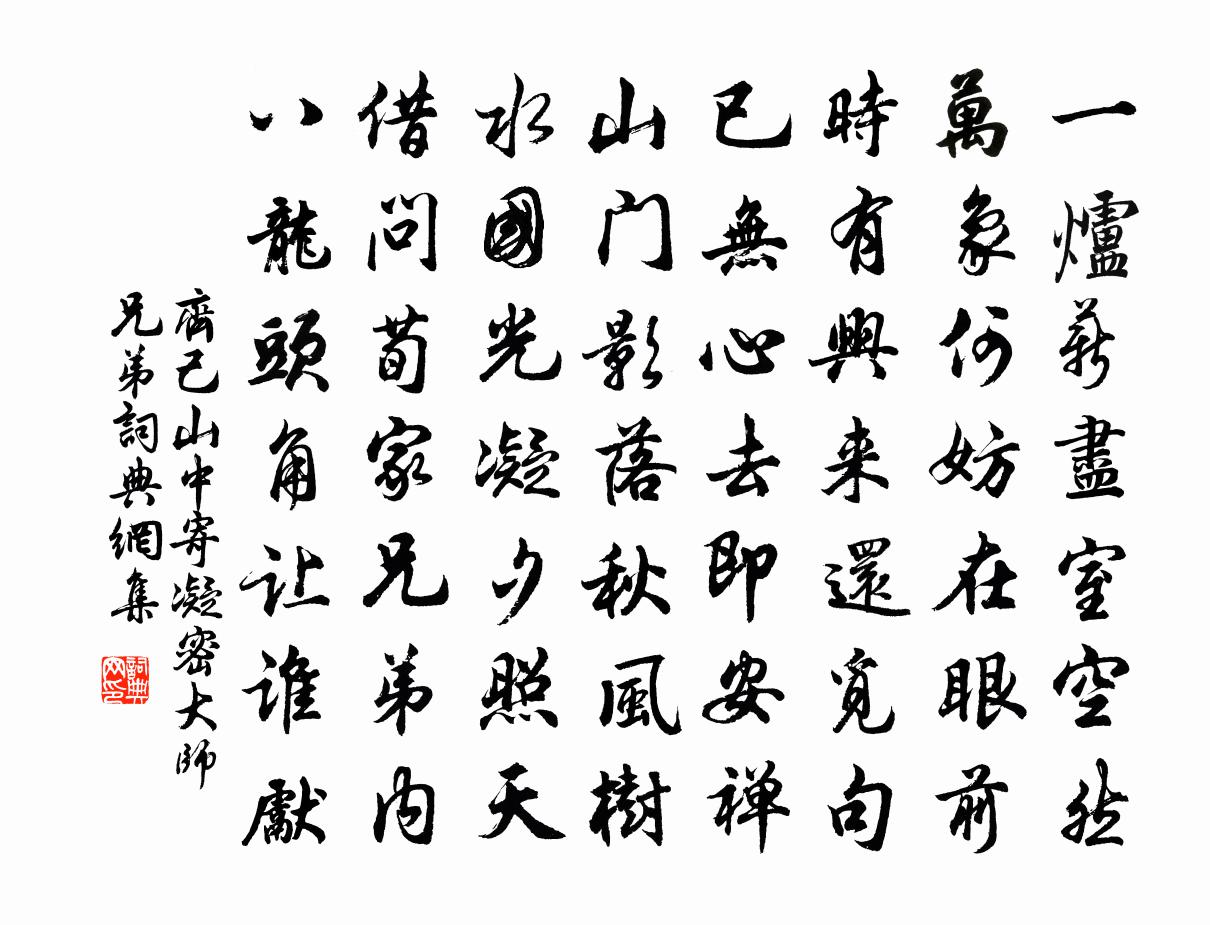 一爐薪盡室空然
萬象何妨在眼前
時有興来還覓句
已無心去即安禅
山门影落秋風樹
水國光凝夕照天
借問荀家兄弟内
八龍頭角让誰獻
齊己山中寄凝密大師
兄弟詞典網集
詞典
网印